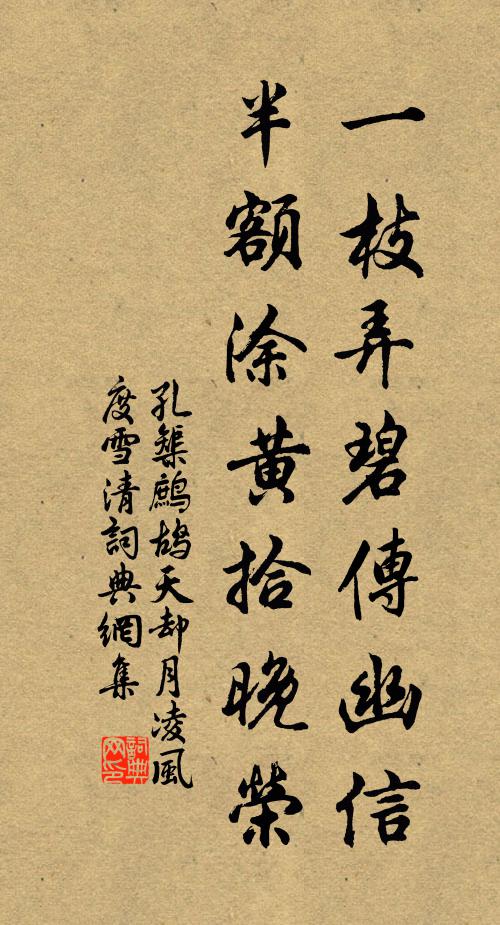 一枝弄碧傳幽信
半額涂黃拾晚榮
孔榘鷓鴣天却月凌風
度雪清詞典網集
詞典
网印